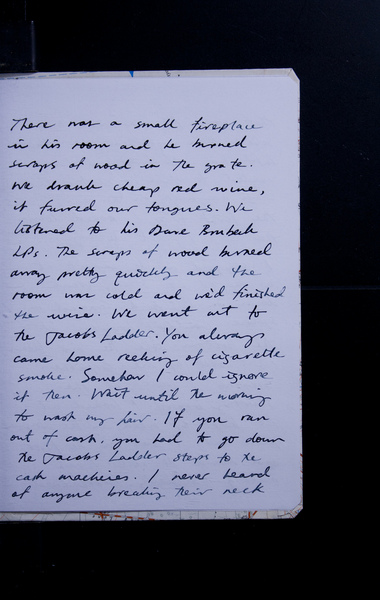 There was a small fireplace
in his room and he burned
scraps of wood in the grate.
We drank cheap red wine,
it furred our tongues. We
listened to his Dave Brubeck
LPs. The scraps of wood burned
away pretty quickly and the
room was cold and we'd finished
the wine. We went out to
the Jacobs Ladder. You always
came home reeking of cigarette
smoke. Somehow I could ignore
it then. Wait until the morning
to wash my hair. If you ran
out of cash, you had to go down
the Jacobs Ladder steps to the
cash machines. I never heard
of anyone breaking their neck